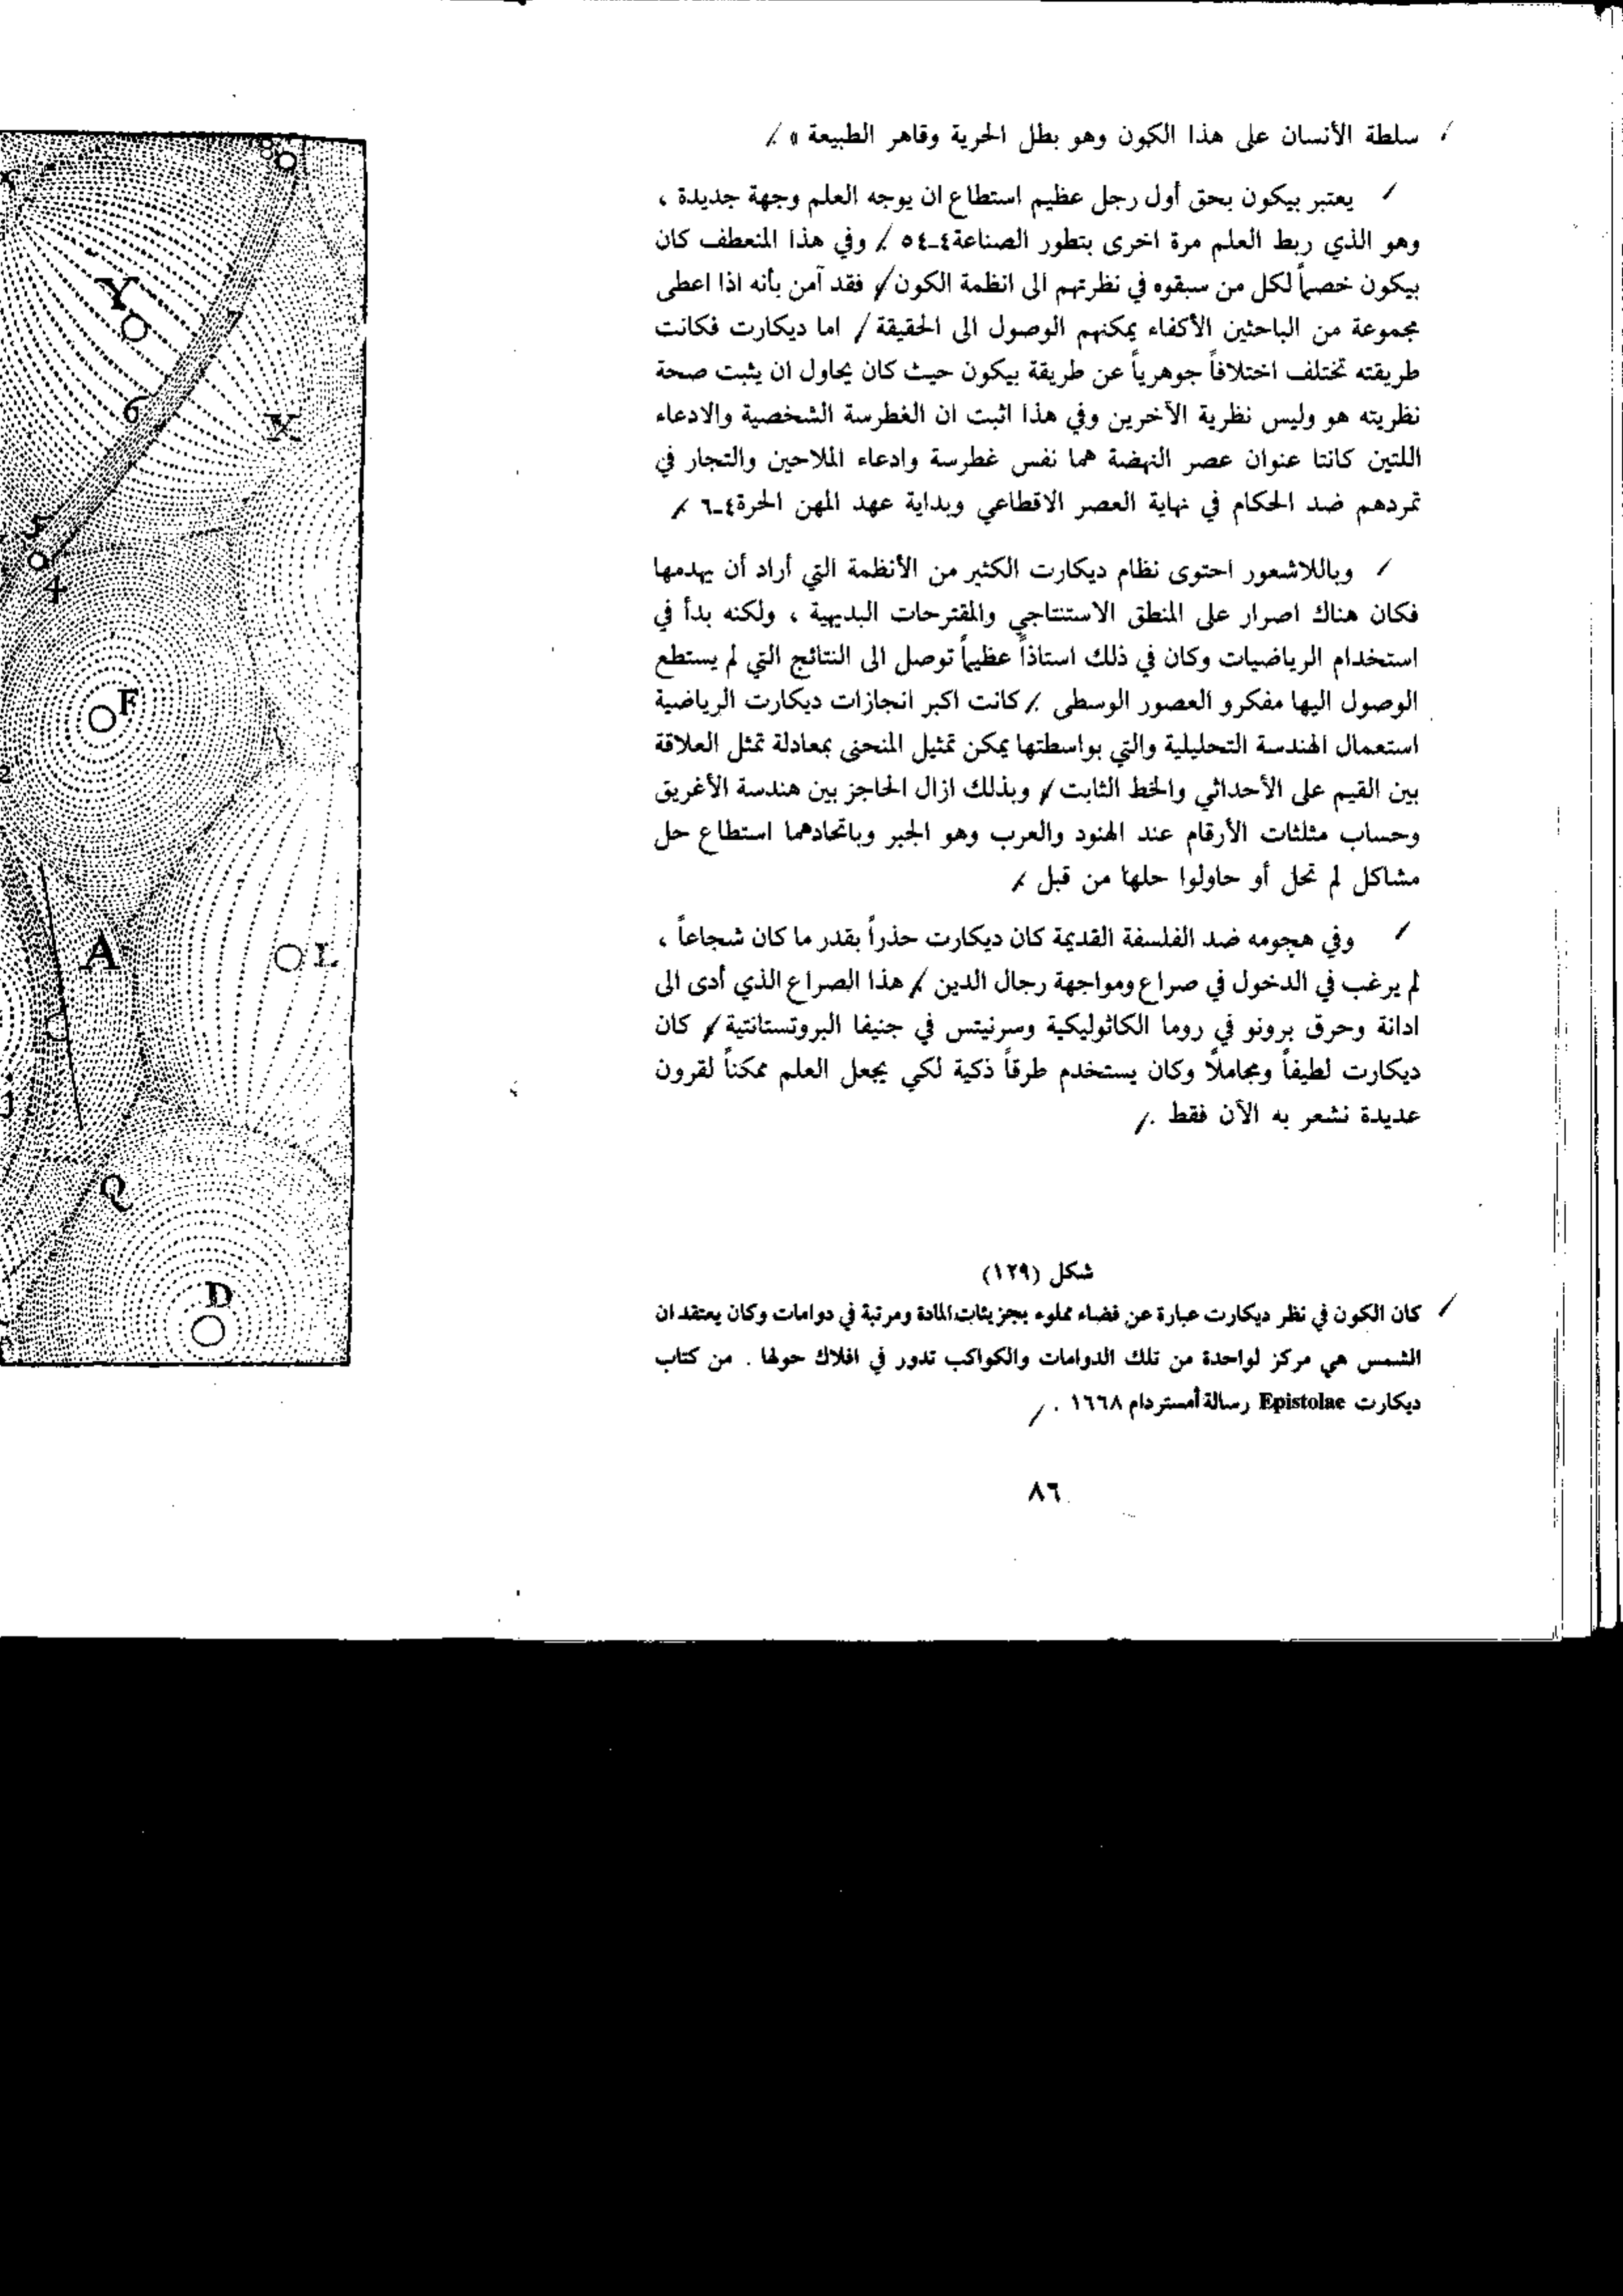 سلطة الأنسان على هذا الكون وهو بطل الحرية وقاهر الطبيعة » .
يعتبر بيكون بحق أول رجل عظيم استطاع ان يوجه العلم وجهة جديدة ،
وهو الذي ربط العلم مرة اخرى بتطور الصناعة٤-٥٤ . وفي هذا المنعطف كان
بيكون خصماً لكل من سبقوه في نظرتهم الى انظمة الكون . فقد آمن بأنه اذا اعطى
مجموعة من الباحثين الأكفاء يمكنهم الوصول الى الحقيقة . اما ديكارت فكانت
طريقته تختلف اختلافاً جوهرياً عن طريقة بيكون حيث كان يحاول ان يثبت صحة
نظريته هو وليس نظرية الآخرين وفي هذا اثبت ان الغطرسة الشخصية والادعاء
اللتين كانتا عنوان عصر النهضة هما نفس غطرسة وادعاء الملاحين والتجار في
تمردهم ضد الحكام في نهاية العصر الاقطاعي وبداية عهد المهن الحرة٤-٦ .
وباللاشعور احتوى نظام ديكارت الكثير من الأنظمة التي أراد أن يهدمها
فكان هناك اصرار على المنطق الاستنتاجي والمقترحات البديهية ، ولكنه بدأ في
استخدام الرياضيات وكان في ذلك استاذاً عظيماً توصل الى النتائج التي لم يستطع
الوصول اليها مفكرو العصور الوسطى . كانت اكبر انجازات ديكارت الرياضية
استعمال الهندسة التحليلية والتي بواسطتها يمكن تمثيل المنحنى بمعادلة تمثل العلاقة
بين القيم على الأحداثي والخط الثابت . وبذلك ازال الحاجز بين هندسة الأغريق
وحساب مثلثات الأرقام عند الهنود والعرب وهو الجبر وباتحادهما استطاع حل
مشاكل لم تحل أو حاولوا حلها من قبل .
وفي هجومه ضد الفلسفة القديمة كان ديكارت حذراً بقدر ما كان شجاعاً ،
لم يرغب في الدخول في صراع ومواجهة رجال الدين . هذا الصراع الذي أدى الى
ادانة وحرق برونو في روما الكاثوليكية وسرنيتس في جنيفا البروتستانتية . كان
ديكارت لطيفاً ومجاملاً وكان يستخدم طرقاً ذكية لكي يجعل العلم ممكناً لقرون
عديدة نشعر به الآن فقط .
شكل (١٢٩)
كان الكون في نظر ديكارت عبارة عن فضاء مملوء بجزيئات المادة ومرتبة في دوامات وكان يعتقد ان
الشمس هي مركز لواحدة من تلك الدوامات والكواكب تدور في افلاك حولها . من كتاب
ديكارت Epistolae رسالة أمستردام ١٦٦٨ .
٨٦
8
Y
7
6
X
5
4
F
2
A
L
Q
D